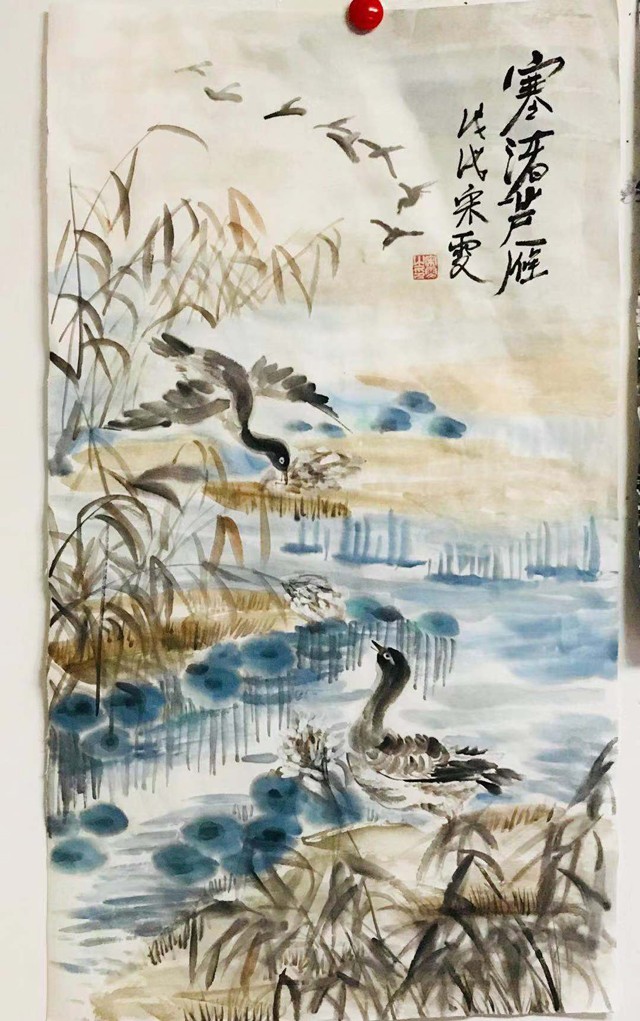 塞渚芦雁
戊戌宋雯